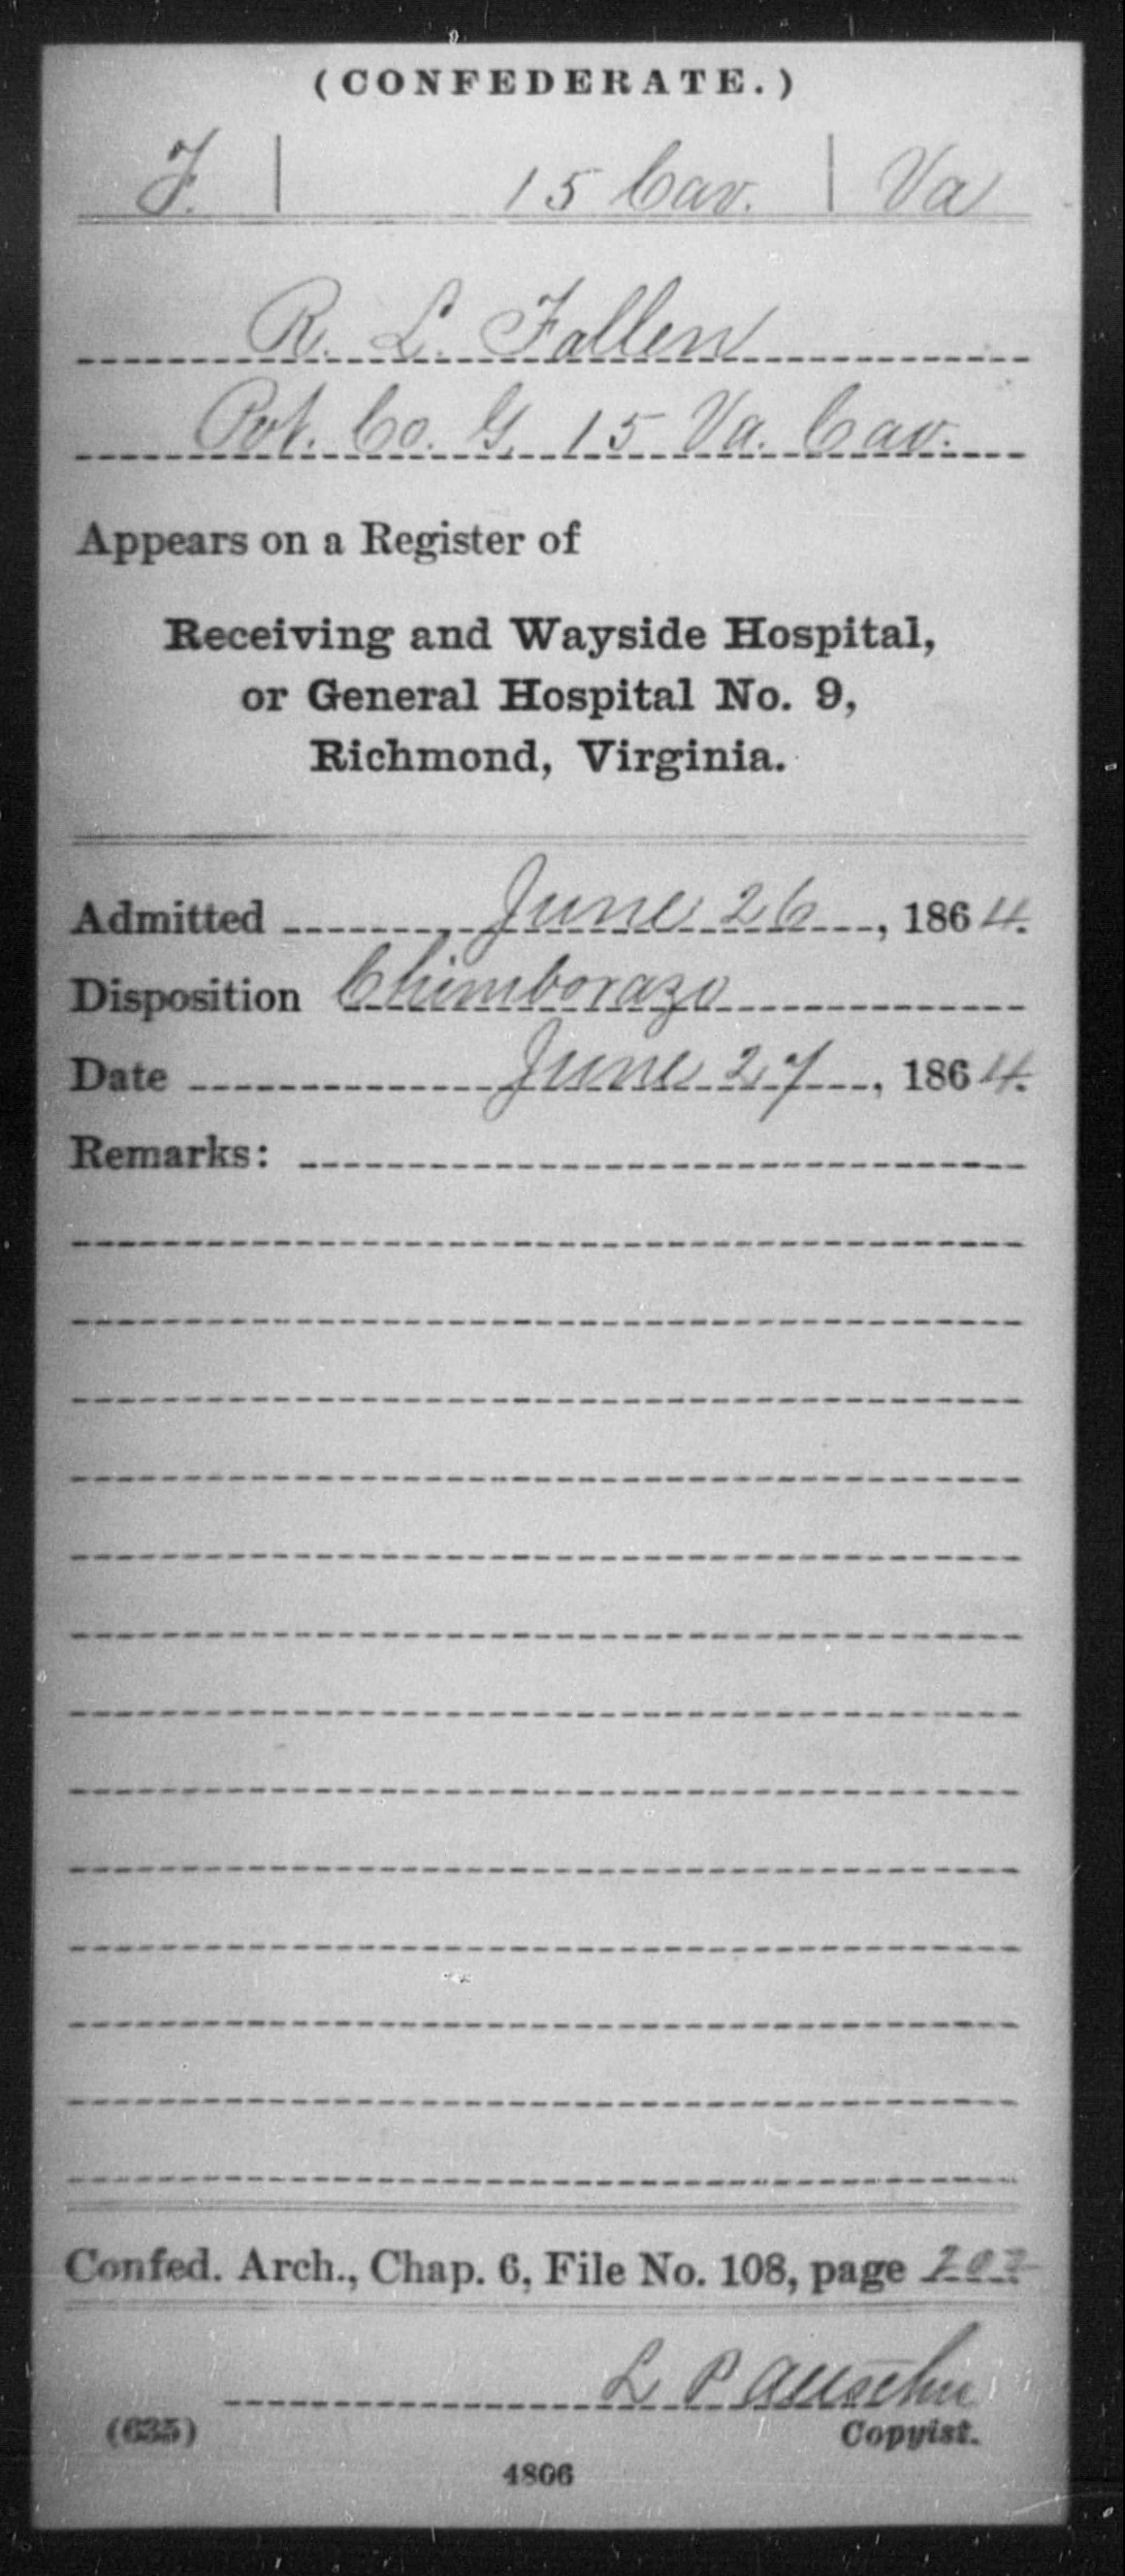 (CONFEDERATE.)
F. | 15 Cav. | Va
R. L. Fallen
Pvt. Co. G, 15 Va. Cav.
Appears on a Register of
Receiving and Wayside Hospital,
or General Hospital No. 9,
Richmond, Virginia.
Admitted June 26, 1864.
Disposition Chimborazo
Date June 27, 1864.
Remarks:
Confed. Arch., Chap. 6, File No. 108, page
L P
(635) Copyist.
4806